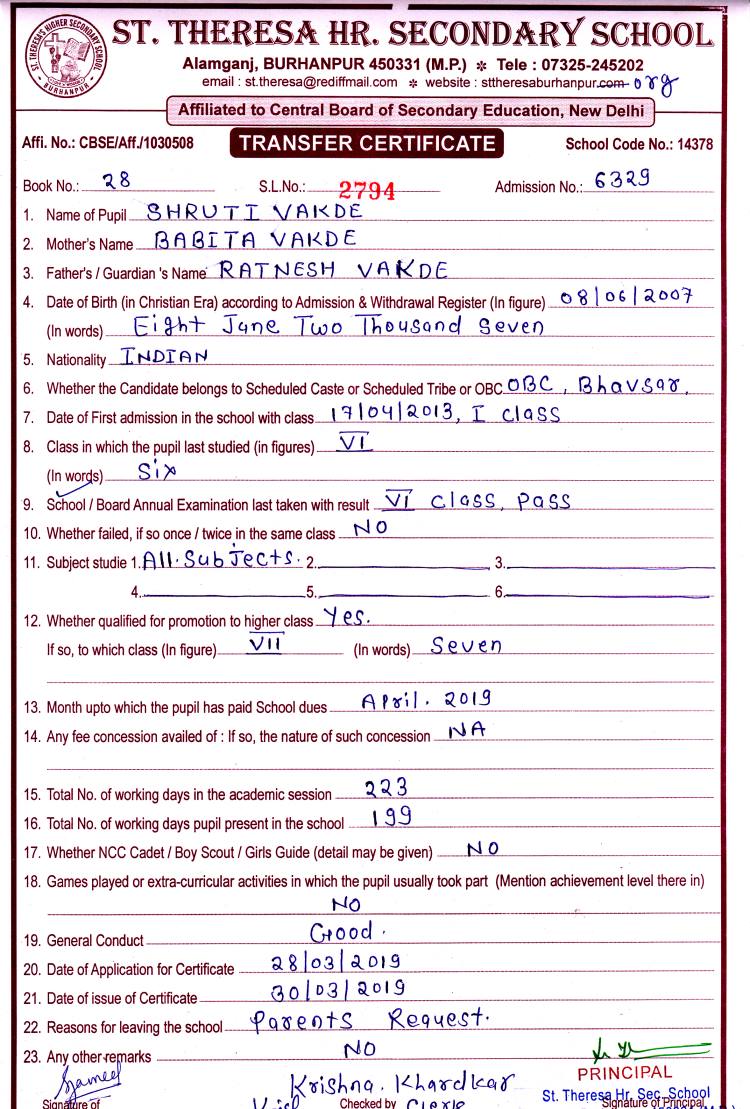 ST. THERESA'S HIGHER SECONDARY SCHOOL
BURHANPUR
ST. THERESA HR. SECONDARY SCHOOL
Alamganj, BURHANPUR 450331 (M.P.) * Tele : 07325-245202
email : st.theresa@rediffmail.com * website : sttheresaburhanpur.com org
Affiliated to Central Board of Secondary Education, New Delhi
Affi. No.: CBSE/Aff./1030508 TRANSFER CERTIFICATE School Code No.: 14378
Book No.: 28 S.L.No.: 2794 Admission No.: 6329
1. Name of Pupil SHRUTI VAKDE
2. Mother's Name BABITA VAKDE
3. Father's / Guardian 's Name RATNESH VAKDE
4. Date of Birth (in Christian Era) according to Admission & Withdrawal Register (In figure) 08|06|2007
(In words) Eight June Two Thousand Seven
5. Nationality INDIAN
6. Whether the Candidate belongs to Scheduled Caste or Scheduled Tribe or OBC OBC, Bhavsar.
7. Date of First admission in the school with class 17|04|2013, I class
8. Class in which the pupil last studied (in figures) VI
(In words) Six
9. School / Board Annual Examination last taken with result VI class, pass
10. Whether failed, if so once / twice in the same class NO
11. Subject studie 1. All.Subjects. 2. 3.
4. 5. 6.
12. Whether qualified for promotion to higher class Yes.
If so, to which class (In figure) VII (In words) Seven
13. Month upto which the pupil has paid School dues April. 2019
14. Any fee concession availed of : If so, the nature of such concession NA
15. Total No. of working days in the academic session 223
16. Total No. of working days pupil present in the school 199
17. Whether NCC Cadet / Boy Scout / Girls Guide (detail may be given) NO
18. Games played or extra-curricular activities in which the pupil usually took part (Mention achievement level there in)
NO
19. General Conduct Good.
20. Date of Application for Certificate 28|03|2019
21. Date of issue of Certificate 30|03|2019
22. Reasons for leaving the school Parents Request.
23. Any other remarks NO
PRINCIPAL
Krishna. Khardkar
St. Theresa Hr. Sec. School
Signature of Checked by Clerk Signature of Principal